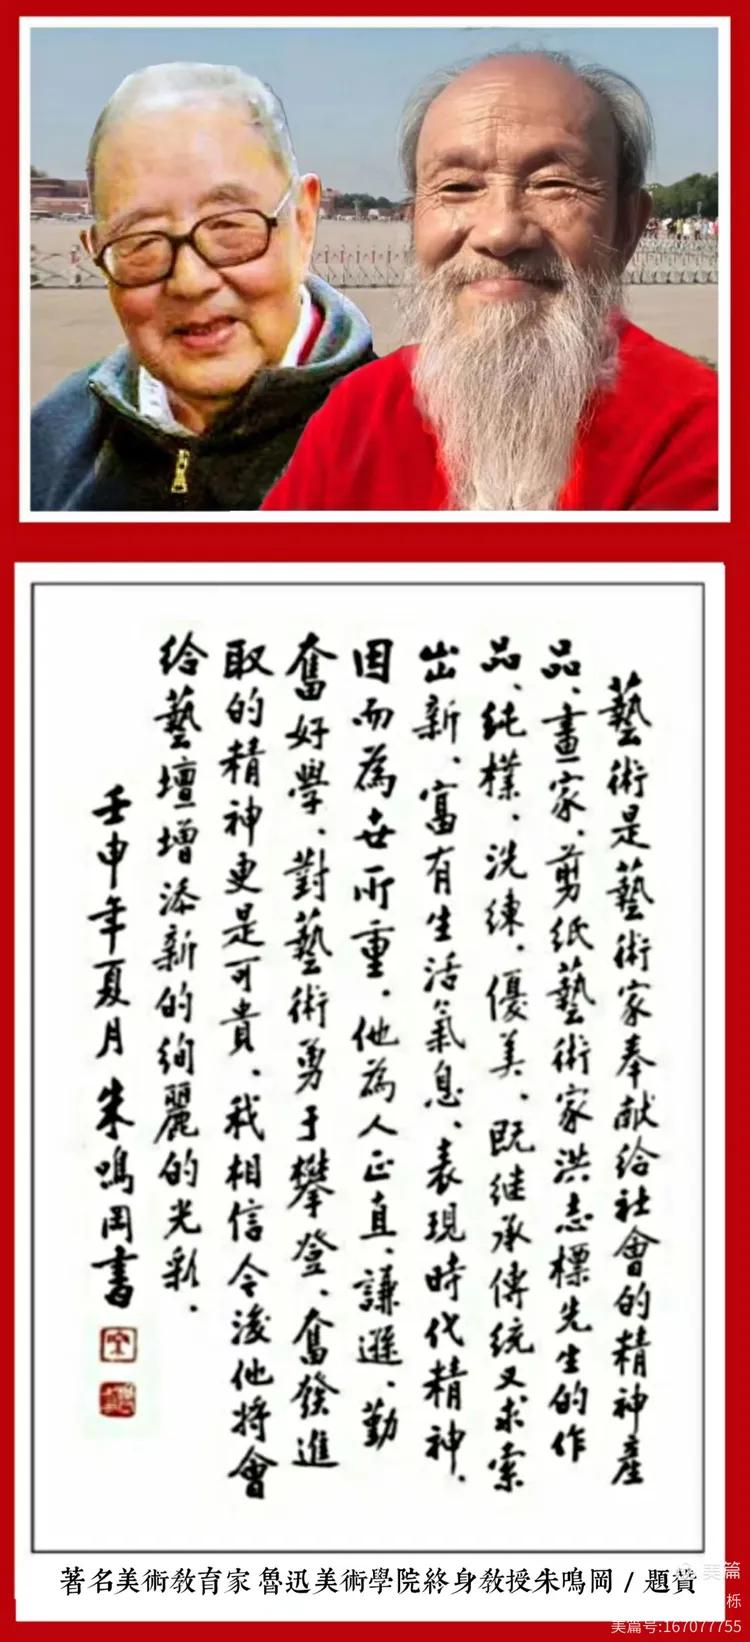 藝術是藝術家奉献給社會的精神產
品、畫家、剪紙藝術家洪志標先生的作
品、純樸、洗練、優美、既继承傳统又求索
出新、富有生活氣息、表現時代精神、
因而為世所重、他為人正直、謙遜、勤
奮好學、對藝術勇于攀登、奮發進
取的精神更是可貴、我相信今後他將會
給藝壇增添新的絢麗的光彩.
壬申年夏月 朱鳴岡書
著名美術教育家 魯迅美術學院終身教授朱鳴岡 / 題贊
美篇
栎
美篇号:167077755